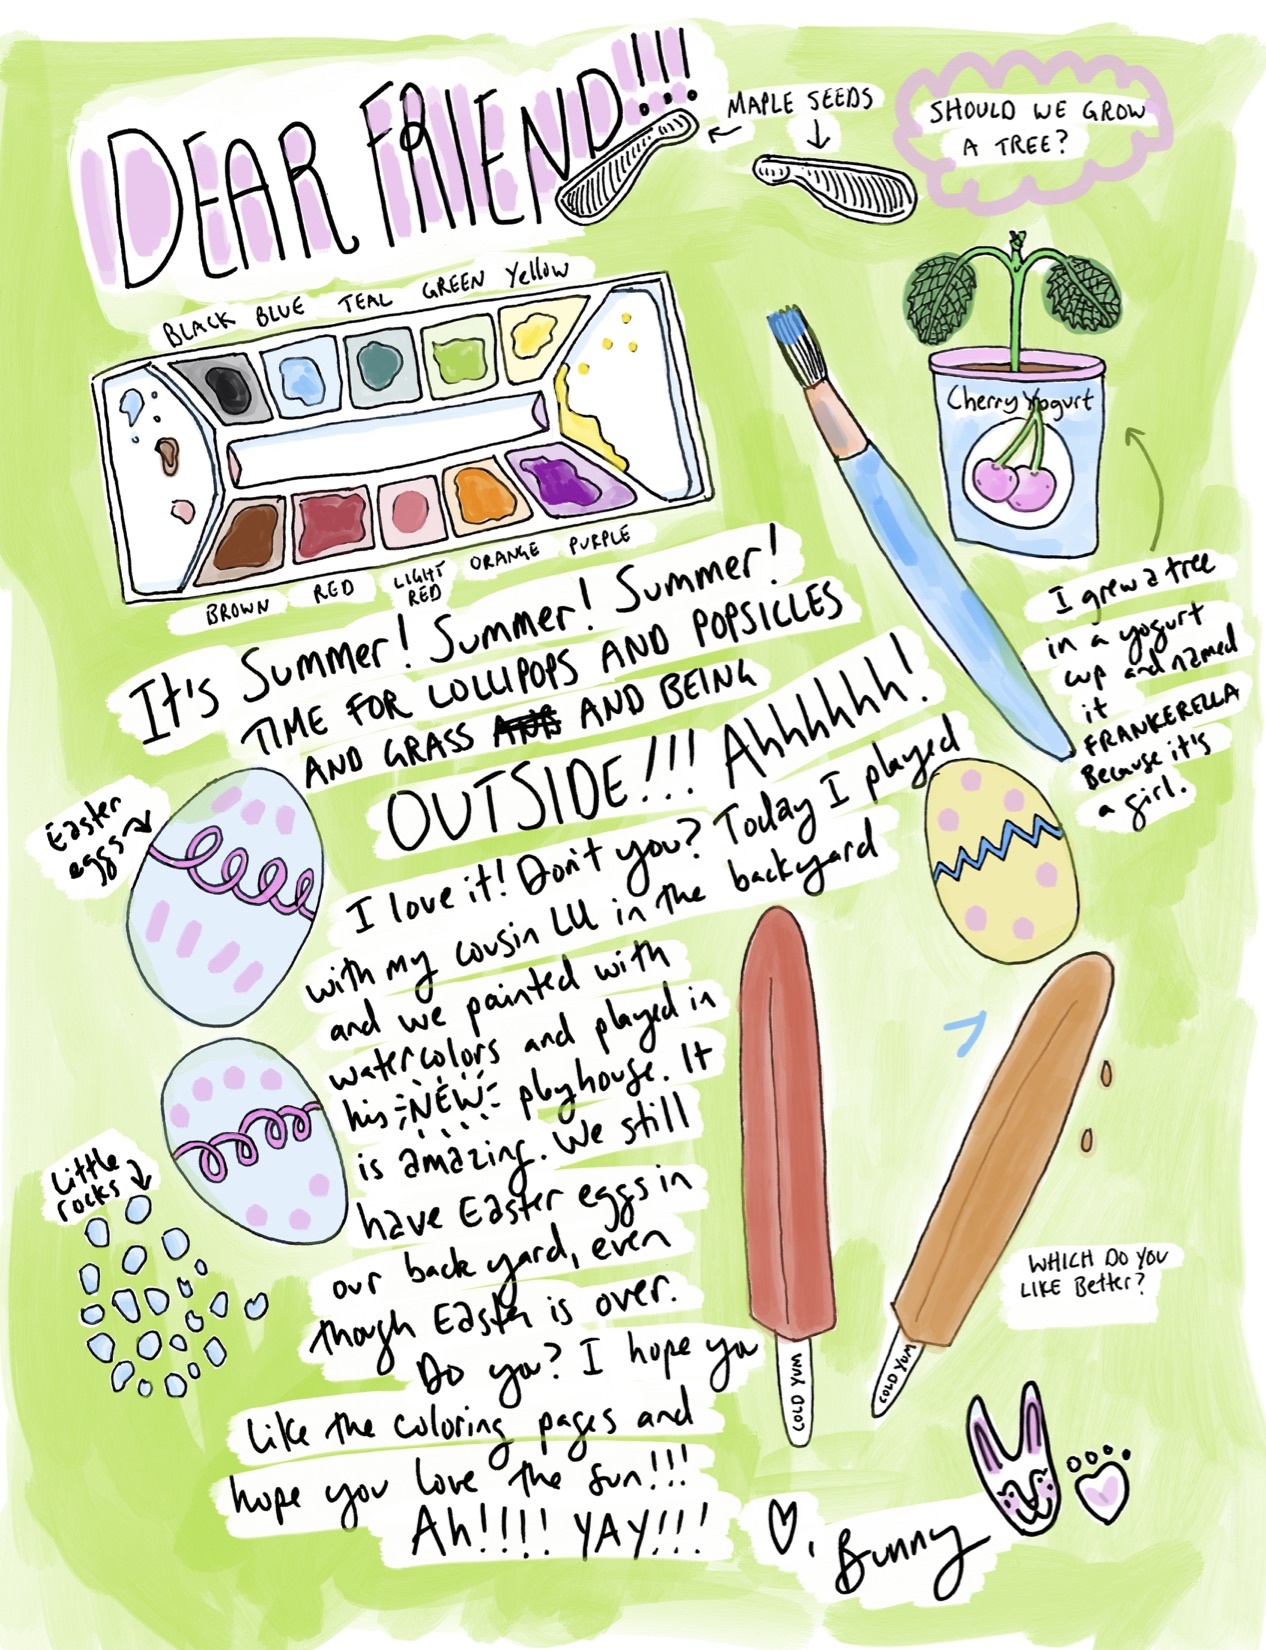 DEAR FRIEND!!!
MAPLE SEEDS
SHOULD WE GROW
A TREE?
BLACK BLUE TEAL GREEN Yellow
BROWN RED LIGHT RED ORANGE PURPLE
Cherry Yogurt
I grew a tree
in a yogurt
cup and named
it
FRANKERELLA
Because it's
a girl.
It's Summer! Summer! Summer!
TIME FOR LOLLIPOPS AND POPSICLES
AND GRASS AND BEING
OUTSIDE!!! Ahhhhhh!
I love it! Don't you? Today I played
with my cousin LU in the backyard
and we painted with
watercolors and played in
his NEW playhouse. It
is amazing. We still
have Easter eggs in
our back yard, even
though Easter is over.
Do you? I hope you
like the coloring pages and
hope you love the sun!!!
Ah!!!! YAY!!!
Easter
eggs
Little
rocks
COLD YUM
COLD YUM
WHICH DO YOU
LIKE Better?
, Bunny